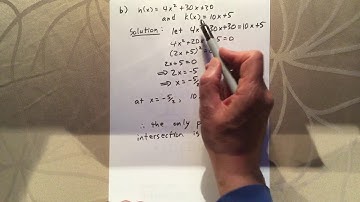 b) h(x) = 4x² + 30x + 30
and k(x) = 10x + 5
Solution: let 4x² + 30x + 30 = 10x + 5
4x² + 20 5 = 0
(2x + 5)²
2x + 5 = 0
⇒ 2x = -5
⇒ x = -5/2
at x = -5/2, 10
∴ the only
intersection is